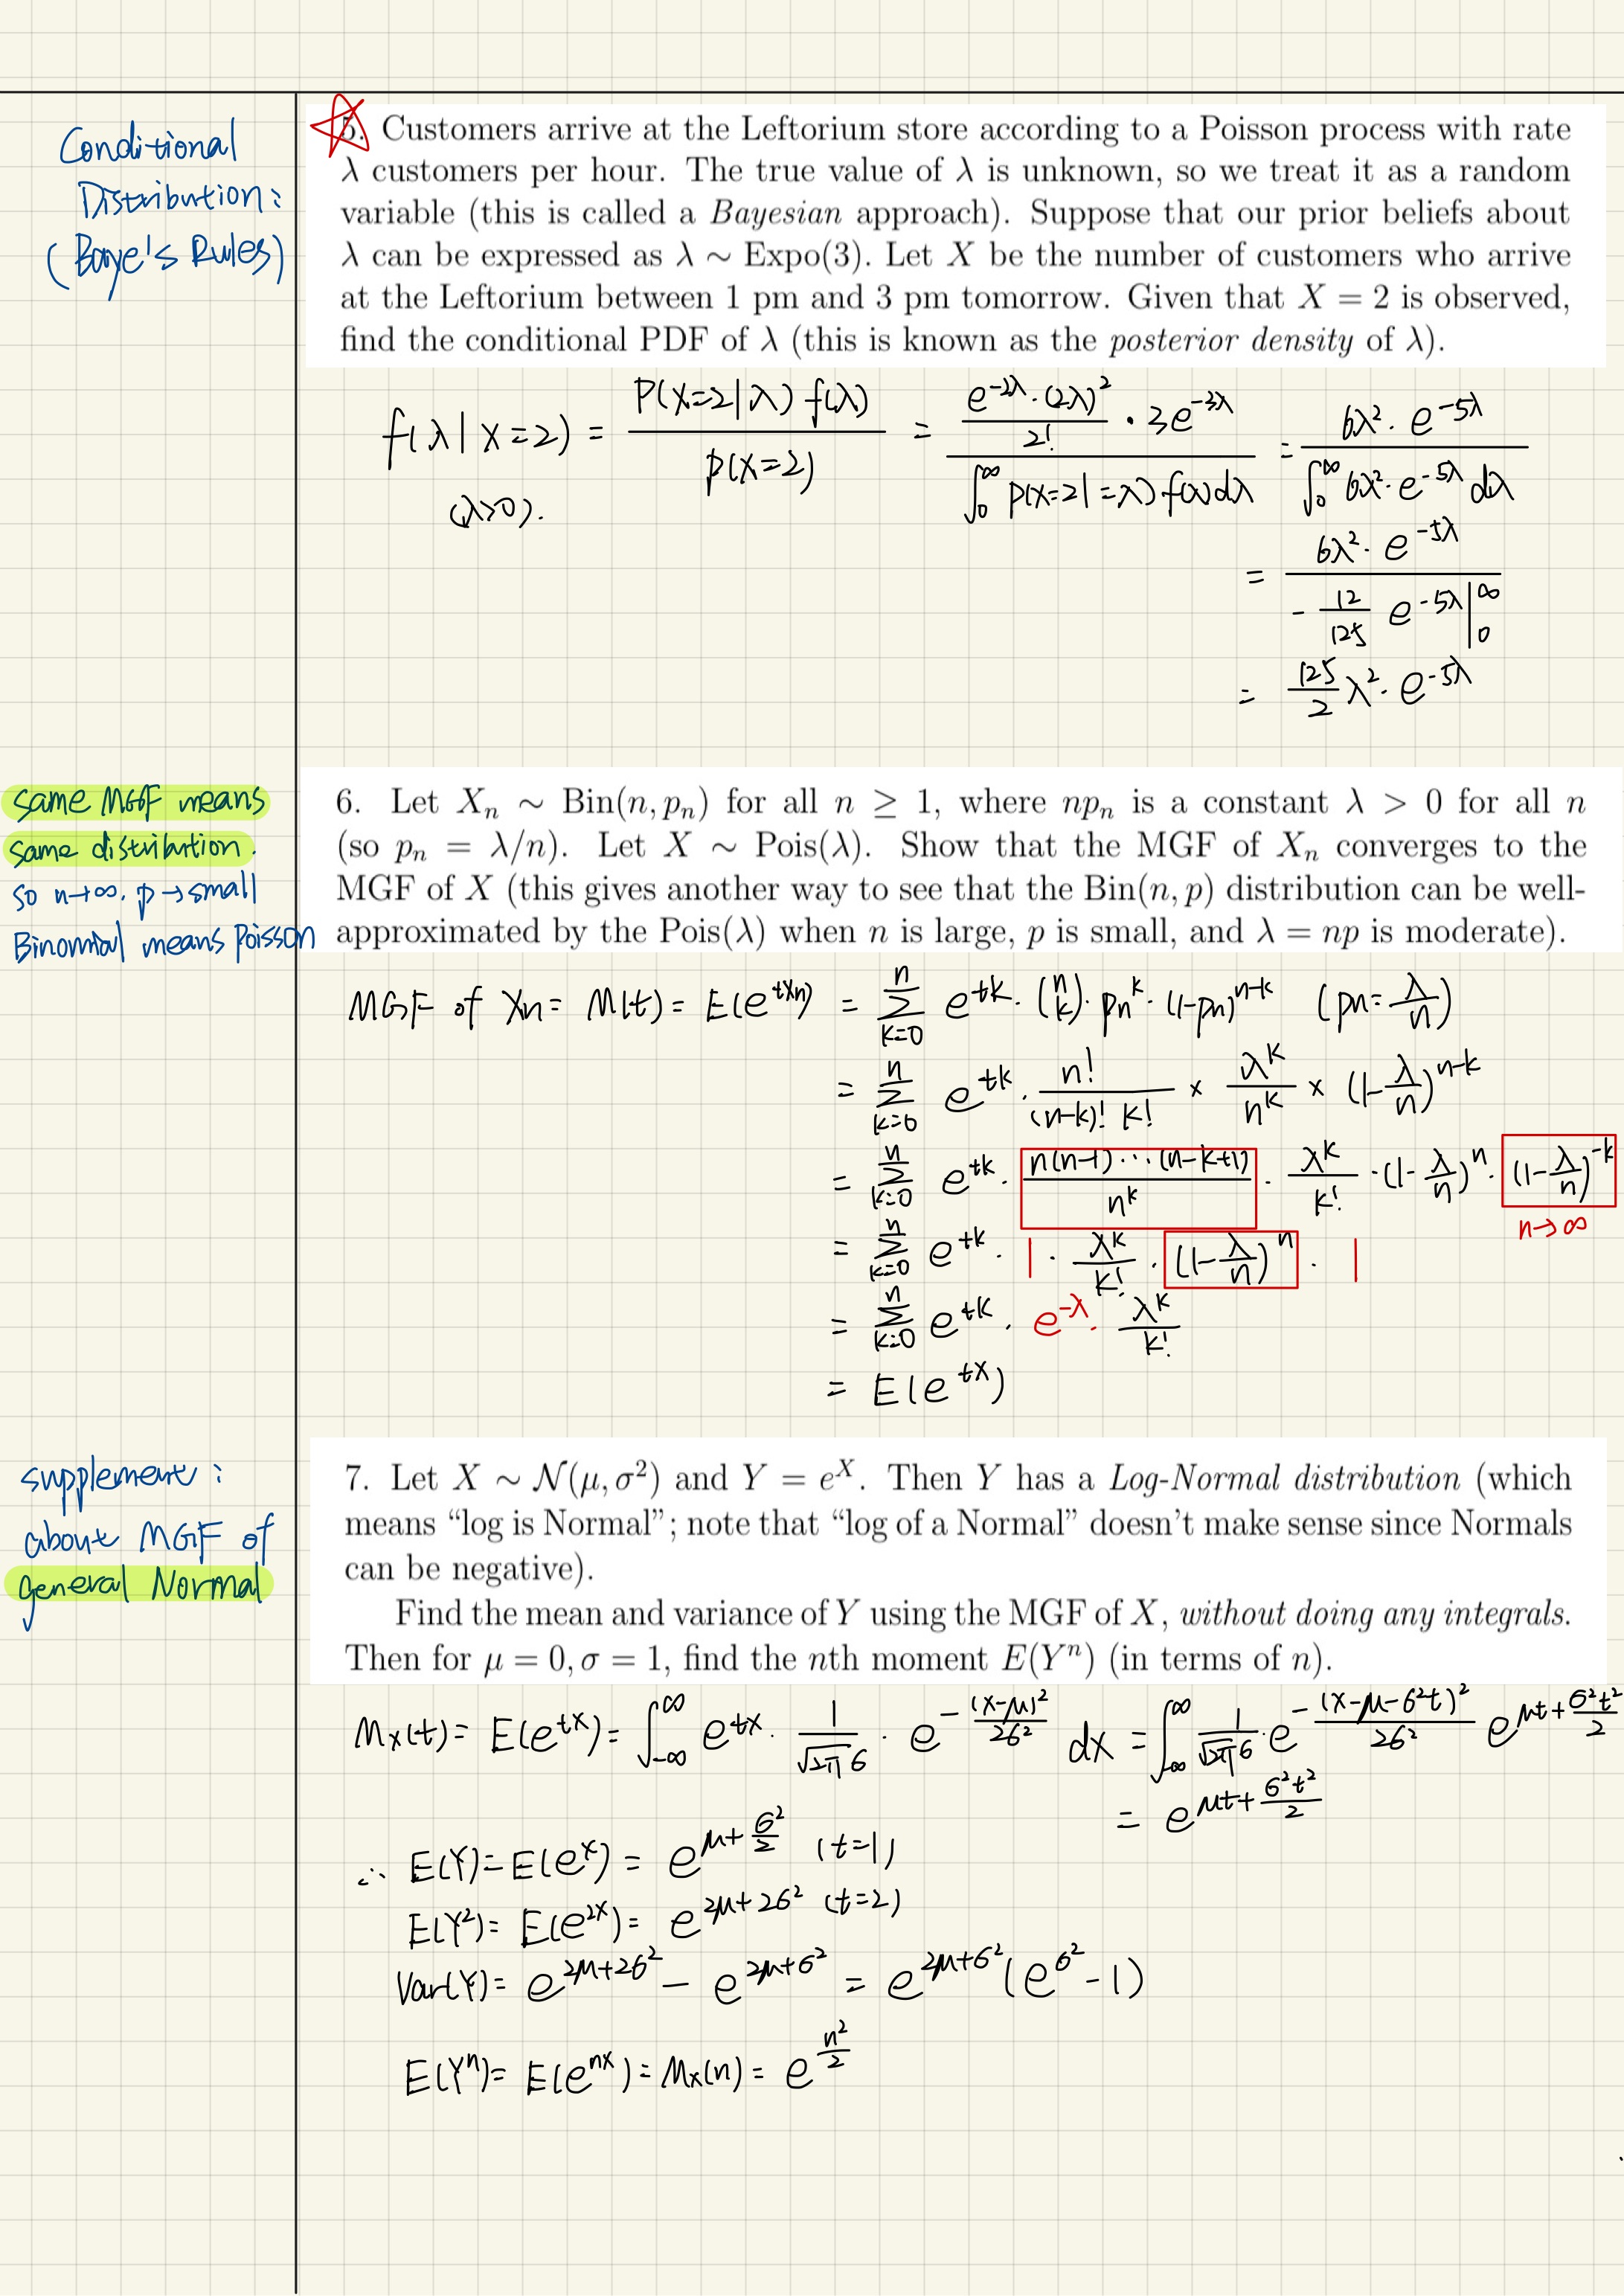 Conditional
Distribution:
(Baye's Rules)
5. Customers arrive at the Leftorium store according to a Poisson process with rate
λ customers per hour. The true value of λ is unknown, so we treat it as a random
variable (this is called a Bayesian approach). Suppose that our prior beliefs about
λ can be expressed as λ ∼ Expo(3). Let X be the number of customers who arrive
at the Leftorium between 1 pm and 3 pm tomorrow. Given that X = 2 is observed,
find the conditional PDF of λ (this is known as the posterior density of λ).
f(λ|X=2) = P(X=2|λ) f(λ) / P(X=2) = (e^{-2λ}·(2λ)^2 / 2! · 3e^{-3λ}) / ∫_0^∞ P(X=2|=λ)·f(λ)dλ = 6λ²·e^{-5λ} / ∫_0^∞ 6λ²·e^{-5λ} dλ
(λ>0).
= 6λ²·e^{-5λ} / (-12/125 e^{-5λ}|_0^∞)
= 125/2 λ²·e^{-5λ}
same MGF means
same distribution.
so n→∞. p→small
Binomial means Poisson
6. Let X_n ∼ Bin(n, p_n) for all n ≥ 1, where np_n is a constant λ > 0 for all n
(so p_n = λ/n). Let X ∼ Pois(λ). Show that the MGF of X_n converges to the
MGF of X (this gives another way to see that the Bin(n, p) distribution can be well-
approximated by the Pois(λ) when n is large, p is small, and λ = np is moderate).
MGF of Xn = M(t) = E(e^{tXn}) = Σ_{k=0}^n e^{tk}·(n k)·pn^k·(1-pn)^{n-k} (pn=λ/n)
= Σ_{k=0}^n e^{tk}·n!/((n-k)! k!) × λ^k/n^k × (1-λ/n)^{n-k}
= Σ_{k=0}^n e^{tk}·n(n-1)···(n-k+1)/n^k · λ^k/k! ·(1-λ/n)^n·(1-λ/n)^{-k}
n→∞
= Σ_{k=0}^n e^{tk}·1·λ^k/k!·(1-λ/n)^n·1
= Σ_{k=0}^n e^{tk}·e^{-λ}·λ^k/k!
= E(e^{tX})
supplement:
about MGF of
general Normal
7. Let X ∼ N(μ, σ²) and Y = e^X. Then Y has a Log-Normal distribution (which
means “log is Normal”; note that “log of a Normal” doesn't make sense since Normals
can be negative).
Find the mean and variance of Y using the MGF of X, without doing any integrals.
Then for μ = 0, σ = 1, find the nth moment E(Y^n) (in terms of n).
Mx(t) = E(e^{tX}) = ∫_{-∞}^∞ e^{tx}·1/(√2π σ)·e^{-(x-μ)²/2σ²} dx = ∫_{-∞}^∞ 1/(√2π σ)·e^{-(x-μ-σ²t)²/2σ²} e^{μt+σ²t²/2}
= e^{μt+σ²t²/2}
∴ E(Y) = E(e^X) = e^{μ+σ²/2} (t=1)
E(Y²) = E(e^{2X}) = e^{2μ+2σ²} (t=2)
Var(Y) = e^{2μ+2σ²} - e^{2μ+σ²} = e^{2μ+σ²}(e^{σ²}-1)
E(Y^n) = E(e^{nX}) = Mx(n) = e^{n²/2}